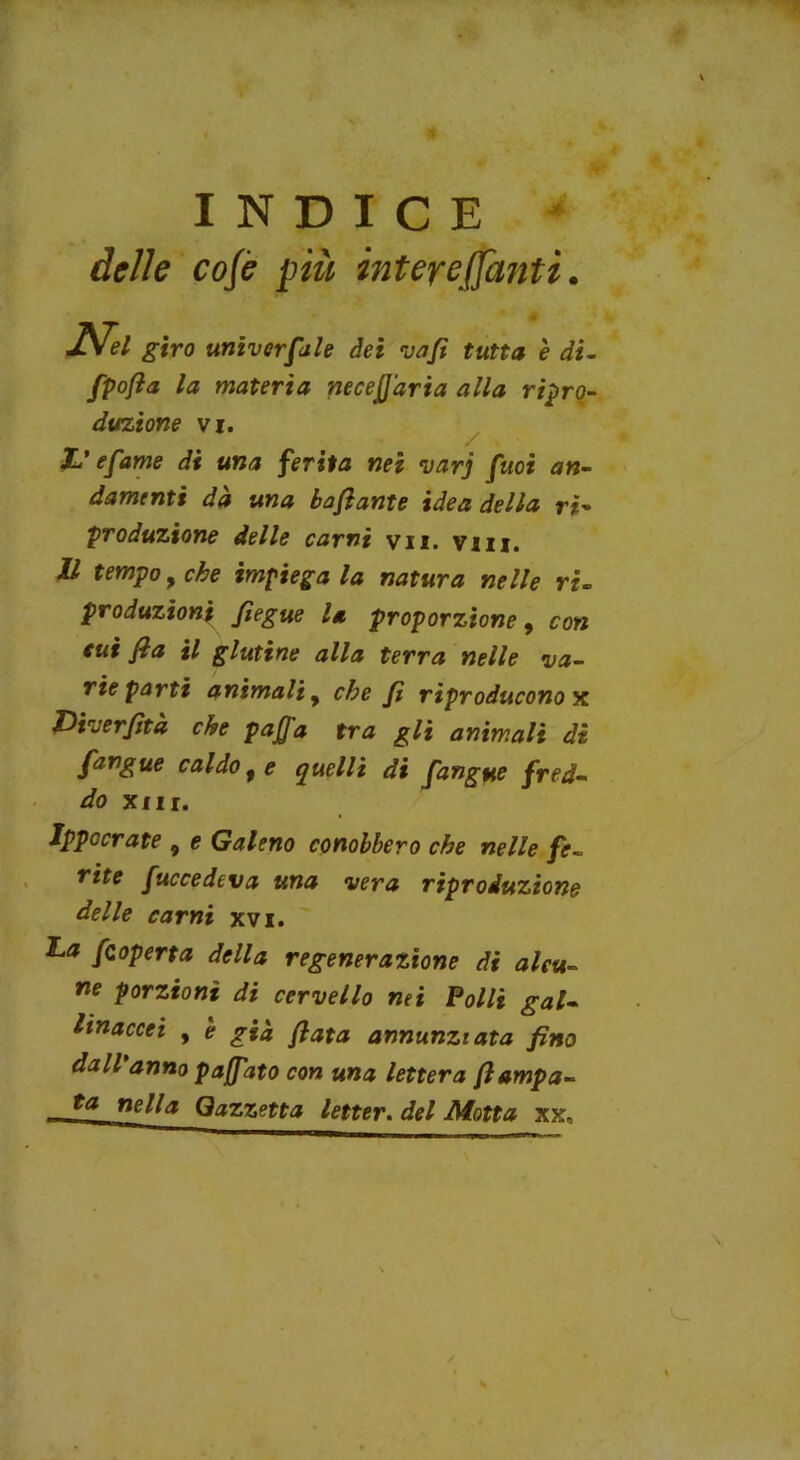 INDICE
delle coſe più intereſſanti.
Nel giro univerſale dei vaſi tutta è di-
ſpoſta la materia neceſſaria alla ripro-
duzione VI.
L'eſame di una ferita nei varj ſuoi an-
damenti dà una baſtante idea della ri-
produzione delle carni VII. VIII.
Il tempo, che impiega la natura nelle ri-
produzioni ſiegue la proporzione, con
cui ſta il glutine alla terra nelle va-
rie parti animali, che ſi riproducono X
Diverſità che paſſa tra gli animali di
ſangue caldo, e quelli di ſangue fred-
do XIII.
Ippocrate, e Galeno conobbero che nelle fe-
rite ſuccedeva una vera riproduzione
delle carni XVI.
La ſcoperta della regenerazione di alcu-
ne porzioni di cervello nei Polli gal-
linaccei, è già ſtata annunziata fino
dall'anno paſſato con una lettera ſtampa-
ta nella Gazzetta letter. del Motta XX.